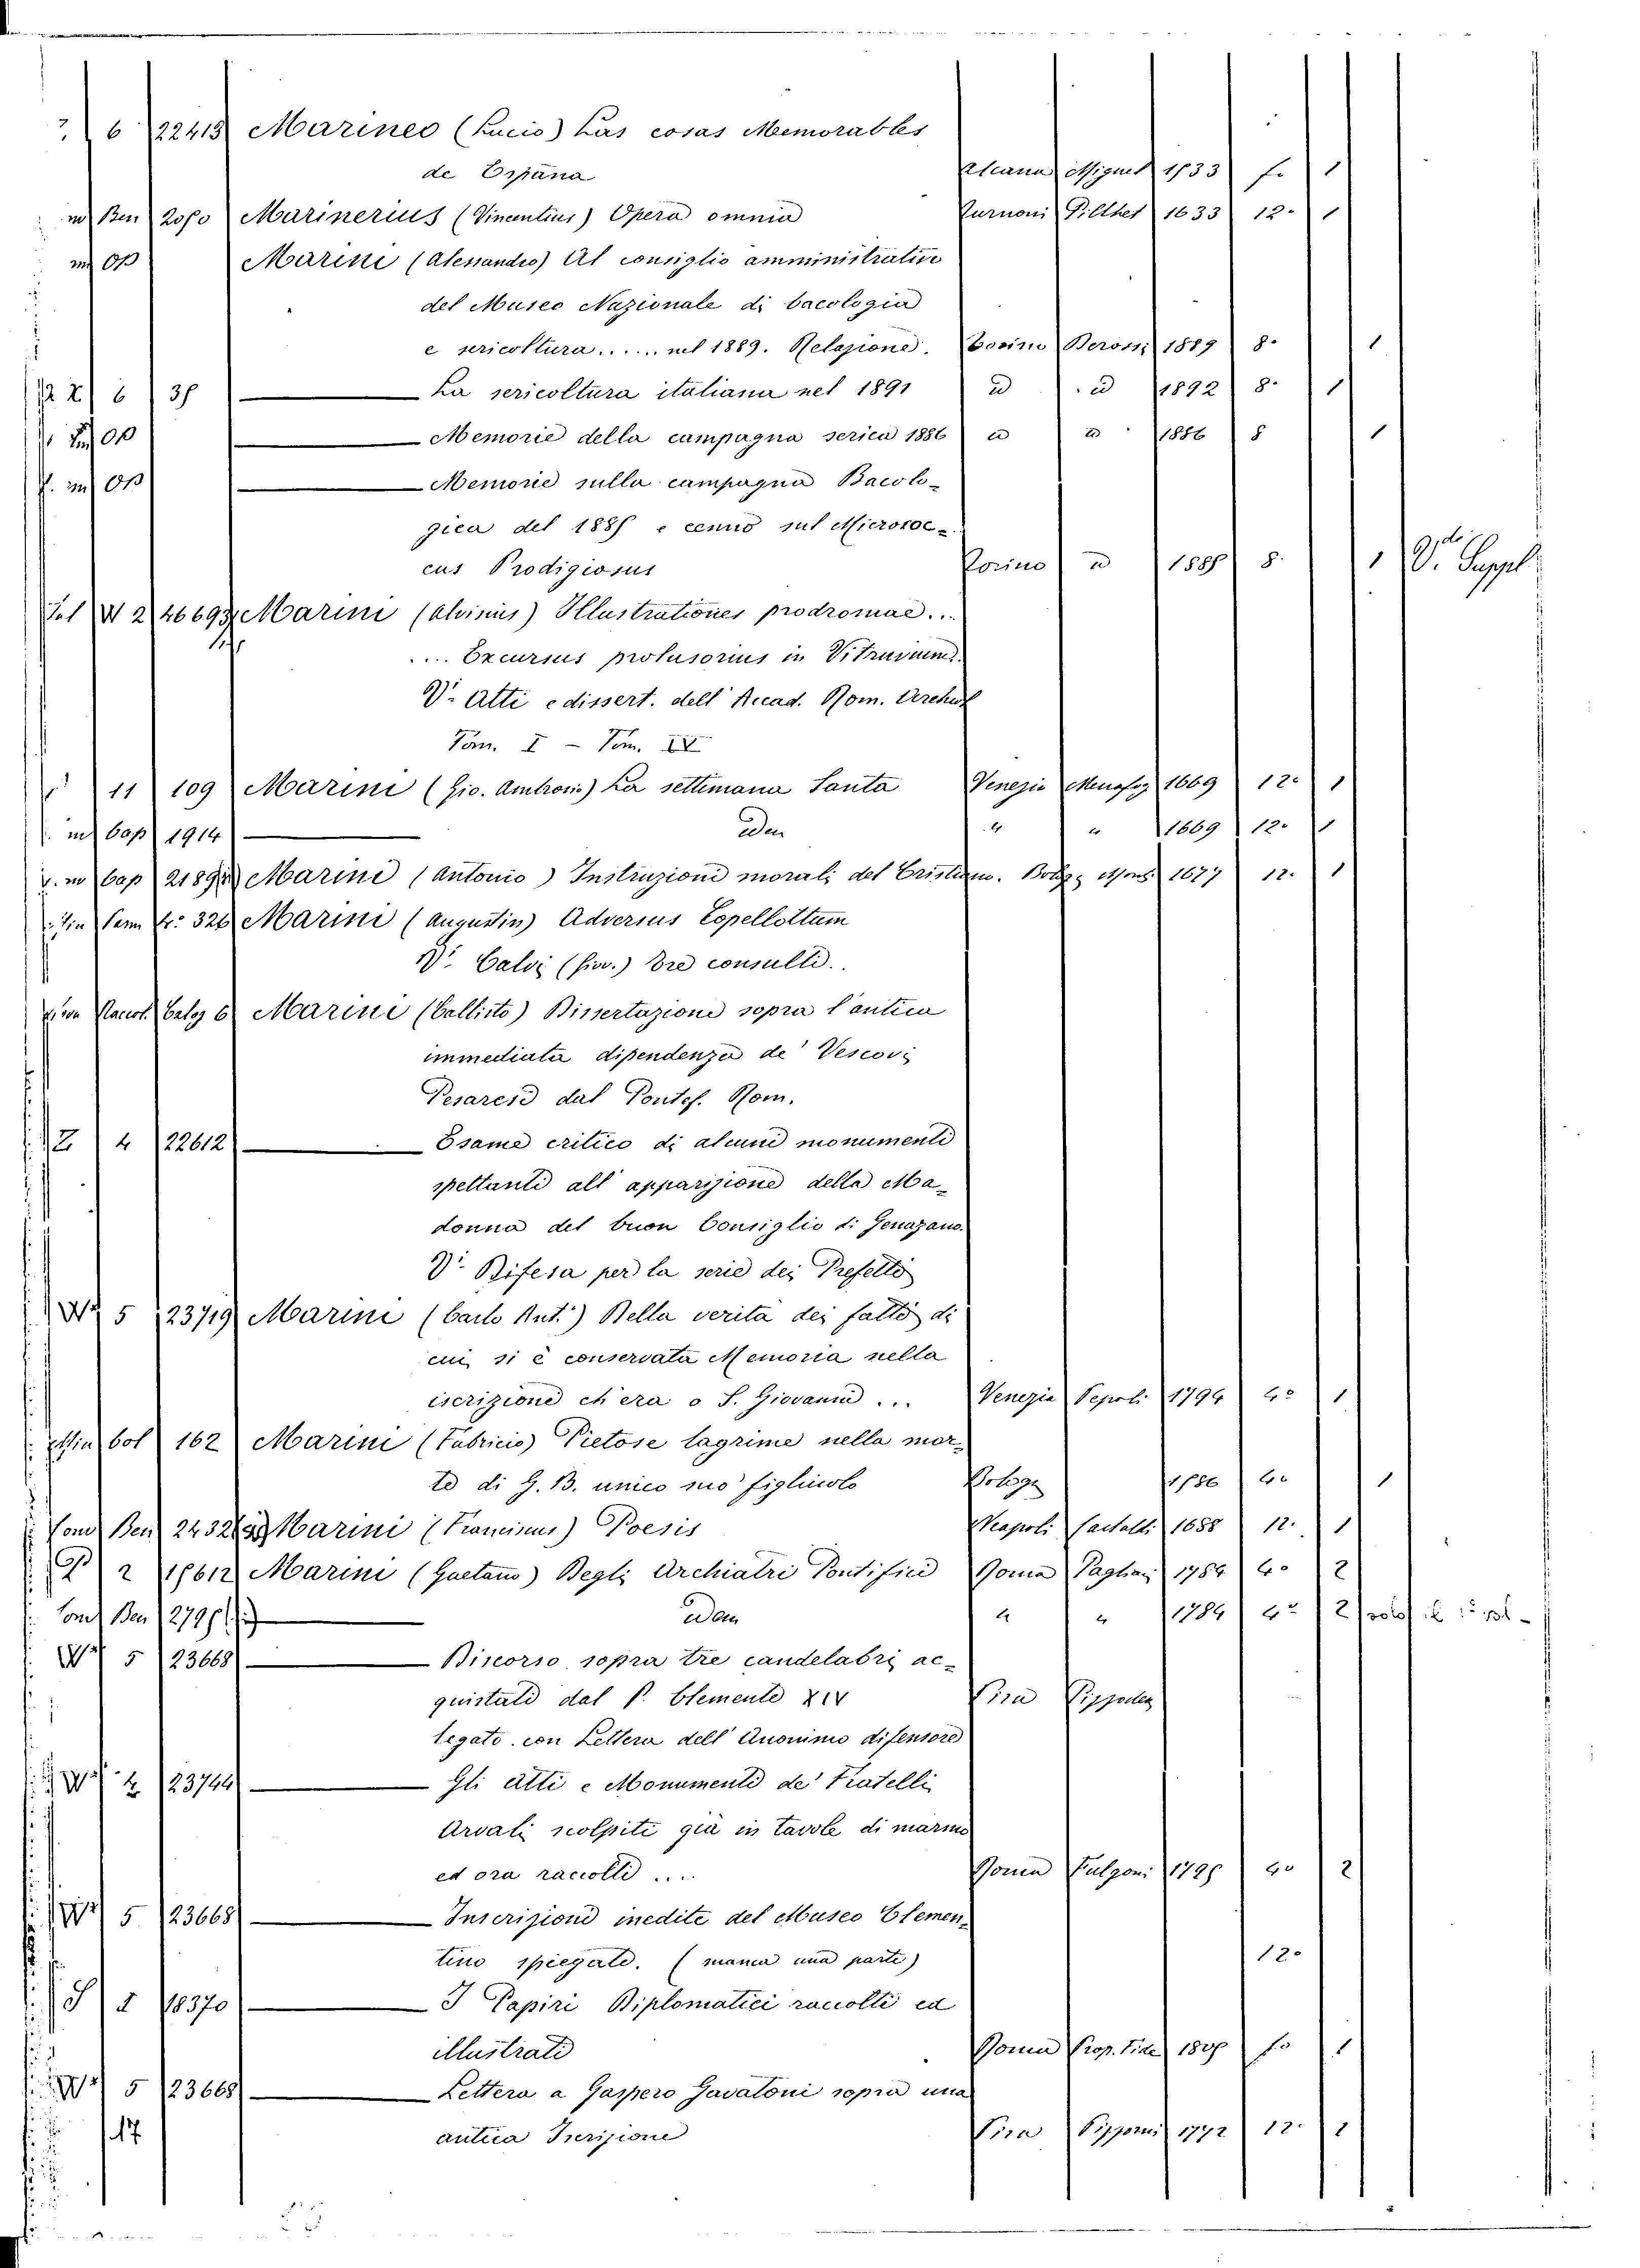 6 22413 Marineo (Lucio) Las cosas Memorables
de Espâna Alcana Miguel 1533 f. 1
in Ben 2050 Marinerius (Vincentius) Opera omnia Turnoni Pillhet 1633 12. 1
in Op Marini (Alessandro) Al consiglio amministrativo
del Museo Nazionale di bacologia
e sericoltura...... nel 1889. Relazione. Torino 1889 8. 1
6 38 La sericoltura italiana nel 1891 id id 1892 8. 1
Op Memorie della campagna serica 1886 id id 1886 8 1
in Op Memorie sulla campagna Bacolo-
gica del 1885 e cenno sul Micrococ-
cus Prodigiosus Torino id 1885 8. 1 Vdi Suppl.
W 2 46693 Marini (Aloisius) Illustrationes prodromae...
.... Excursus prolusorius in Vitruvium.
V. Atti e dissert. dell' Accad. Rom. Archeol
Tom. I - Tom. IV
11 109 Marini (Gio. Ambrosio) La settimana Santa Venezia 1669 12. 1
in Cap 1914 idem " " 1669 12. 1
in Cap 21892 Marini (Antonio) Instruzioni morali del Cristiano. 1677 12. 1
326 Marini (Augustin) Adversus Copellottum
V. Calvi (Giov.) Tre consulti..
6 Marini (Callisto) Dissertazione sopra l'antica
immediata dipendenza de' Vescovi
Pesaresi dal Pontef. Rom.
Z 4 22612 Esame critico di alcuni monumenti
spettanti all'apparizione della Ma-
donna del buon Consiglio di Genazano.
V. Difesa per la serie dei Prefetti
W 5 23719 Marini (Carlo Ant.) Della verità dei fatti di
cui si è conservata Memoria nella
iscrizione ch'era a S. Giovanni ... Venezia Pepoli 1794 4o 1
162 Marini (Fabricio) Pietose lagrime nella mor-
te di G. B. unico suo figliuolo Bologn 1586 4o 1
Ben Marini (Franciscus) Poesis Neapoli 1688 12. 1
2 18612 Marini (Gaetano) Degli Archiatri Pontifici Roma Pagliari 1784 4o 2
Ben idem " " 1784 4o 2
W 5 23668 Discorso sopra tre candelabri ac-
quistati dal P. Clemente XIV Pisa
legato con Lettera dell'Anonimo difensore
W 23744 Gli Atti e Monumenti de' Fratelli
Arvali scolpiti già in tavole di marmo
ed ora raccolti .... Roma Fulgoni 1795 4o 2
W 5 23668 Inscrizioni inedite del Museo Clemen-
tino spiegate. (manca una parte) 12o
18370 I Papiri Diplomatici raccolti ed
illustrati Roma Prop. Fide 1805 fo 1
W 5 23668 Lettera a Gaspero Garatoni sopra una
17 antica Iscrizione Pisa 1772 12. 1